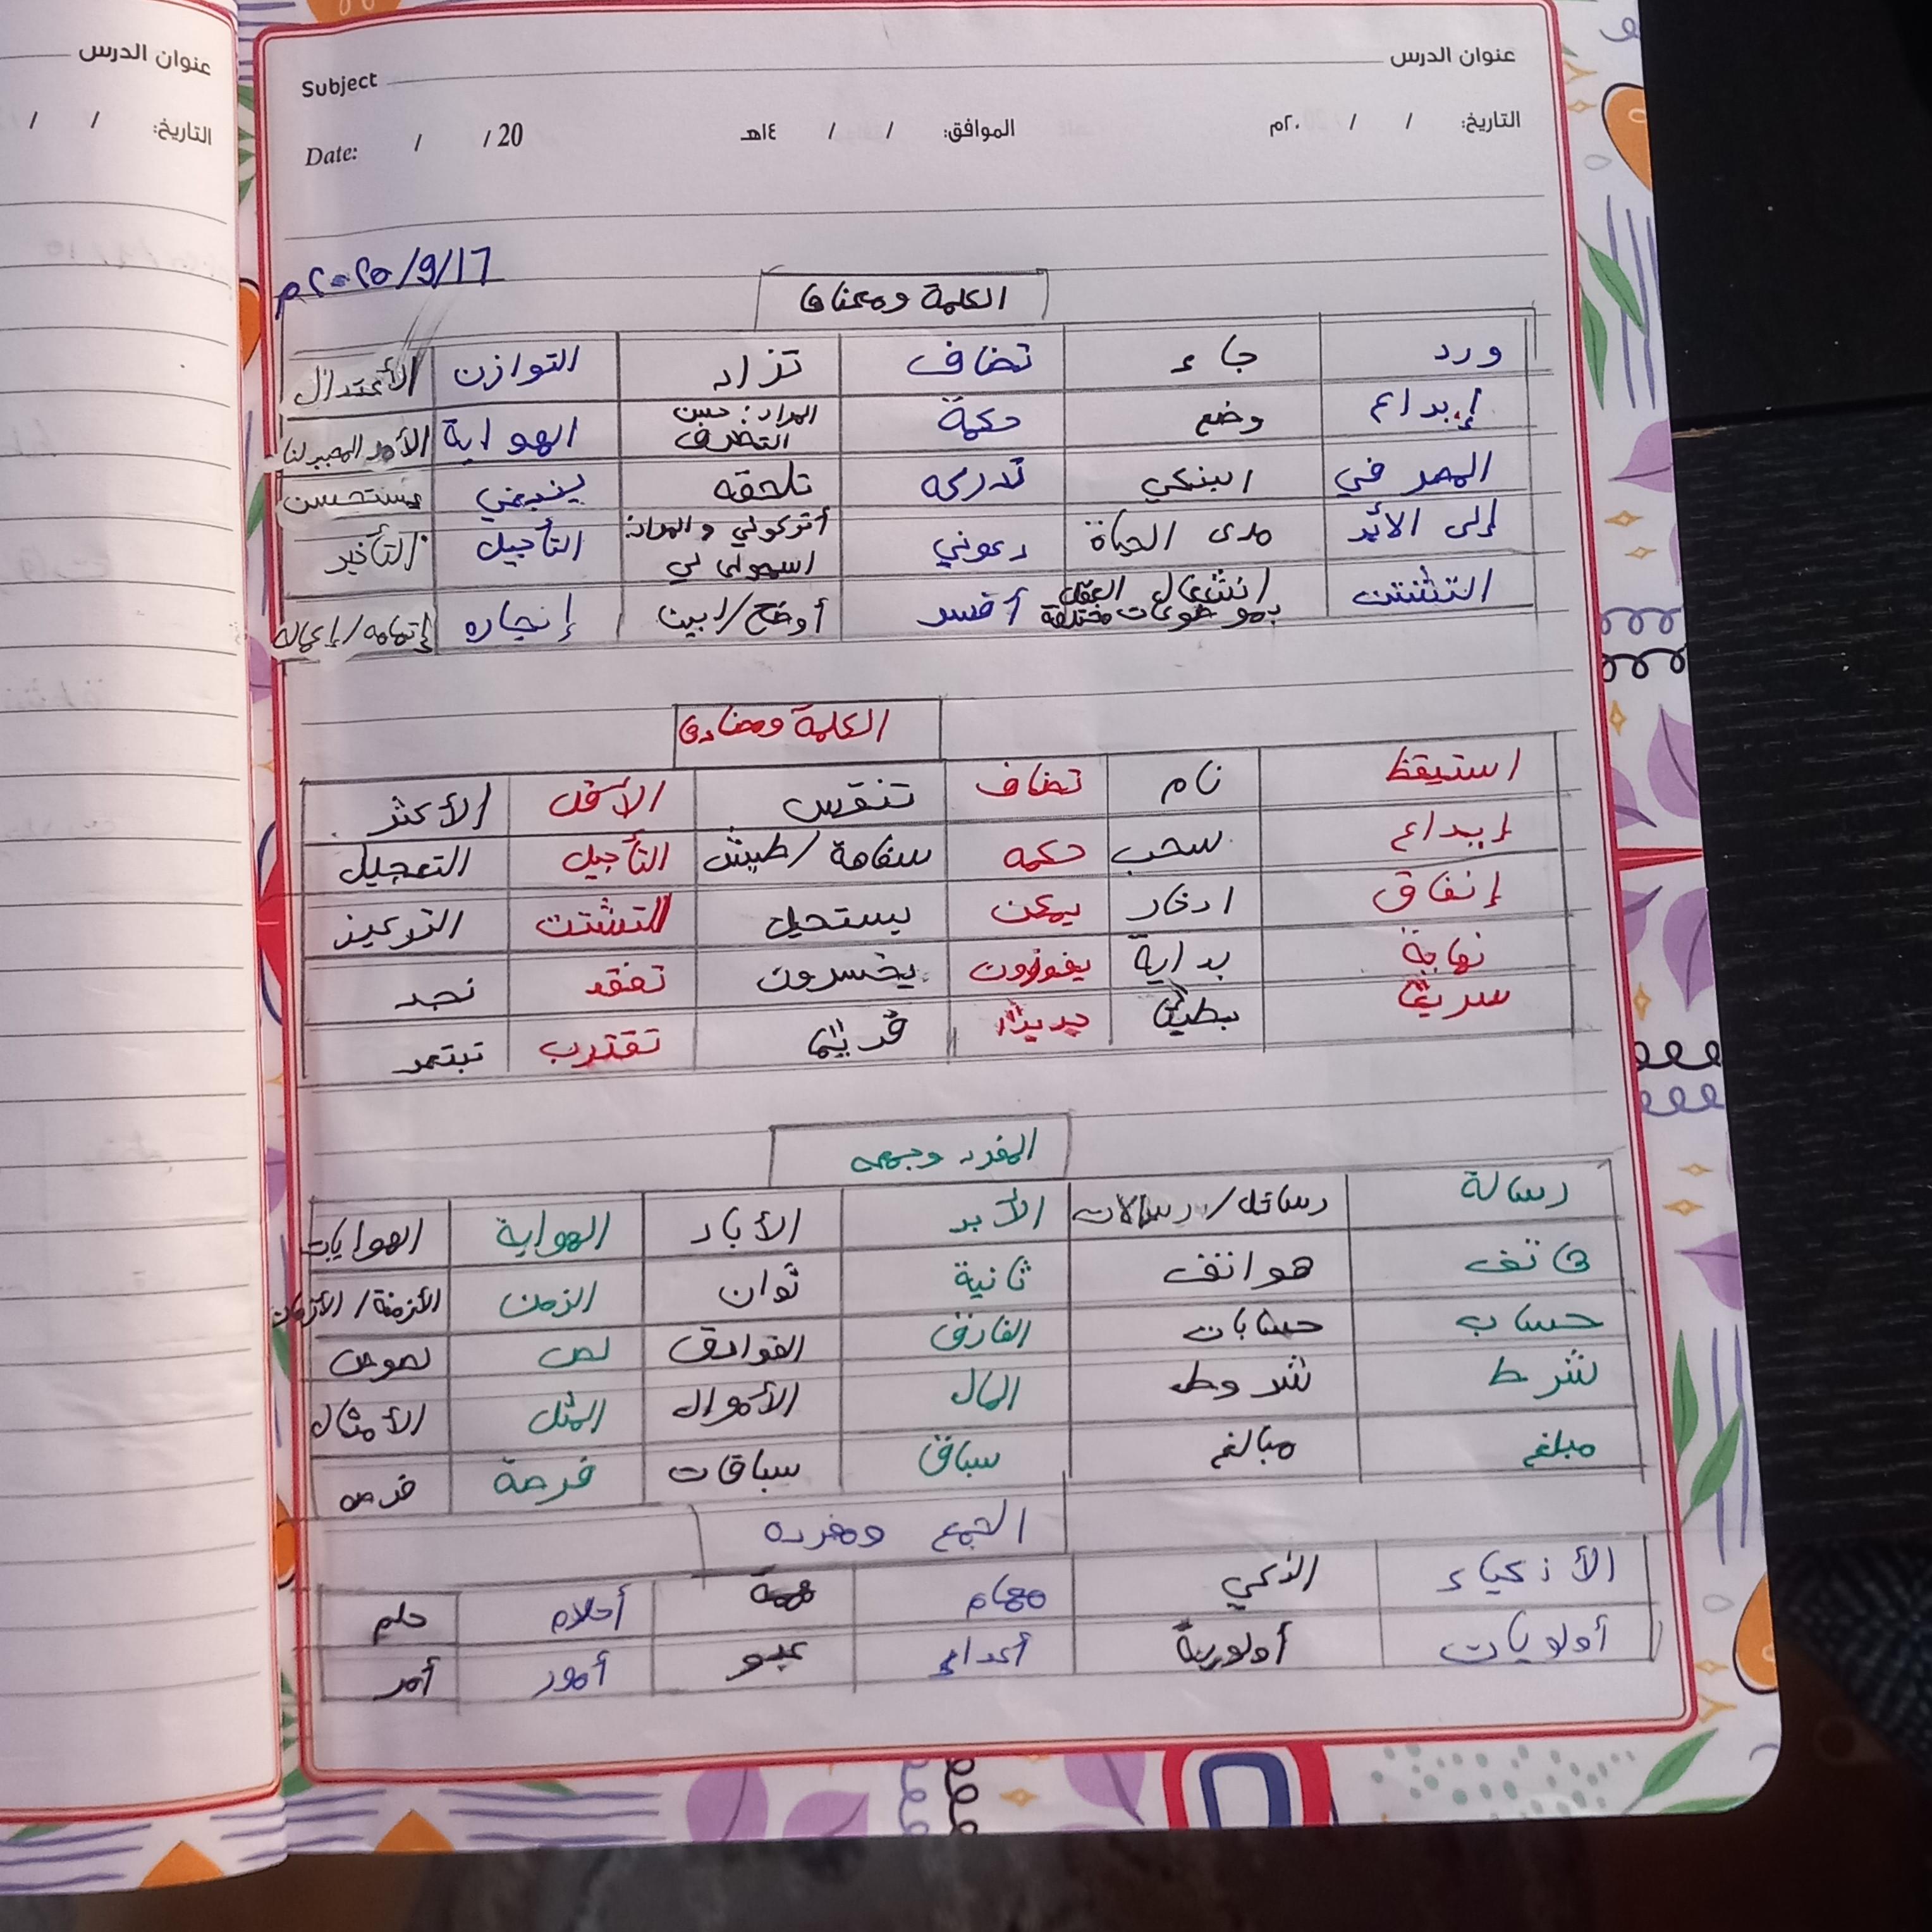 عنوان الدرس
التاريخ: / /
عنوان الدرس Subject
التاريخ: / / ٢٠م الموافق: / / ١٤هـ Date: / / 20
17/9/٢٠٢٥م
الكلمة ومعناها
ورد جاء تضاف تزاد التوازن الأعتدال
إبداع وضع حكمة المراد: حسن التصرف الهواية الأمر المحبب لنا
المصرفي البنكي تدركه تلحقه ينبغي يستحسن
إلى الأبد مدى الحياة دعوني أتركولي والمراد: اسمحولي لي التأجيل التأخير
التشتت انشغال العقل بموضوعات مختلفة أفسر أوضح/ابين إنجازه إتمامه/إكماله
الكلمة ومضادها
استيقظ نام تضاف تنقص الأقل الأكثر
إبداع سحب حكمه سفاهة/طيش التأجيل التعجيل
إنفاق ادخار يمكن يستحيل التشتت التركيز
نهاية بداية يفوزون يخسرون تفقد تجد
سريعًا بطيئًا جديدًا قديمًا تقترب تبتعد
المفرد وجمعه
رسالة رسائل/رسالات الأبد الأباد الهواية الهوايات
هاتف هواتف ثانية ثوان الزمن الأزمنة/الأزمان
حساب حسابات الفارق الفوارق لص لصوص
شرط شروط المال الأموال المثل الأمثال
مبلغ مبالغ سباق سباقات فرصة فرص
الجمع ومفرده
الأذكياء الذكي مهام مهمة أحلام حلم
أولويات أولوية أعداء عدو أمور أمر